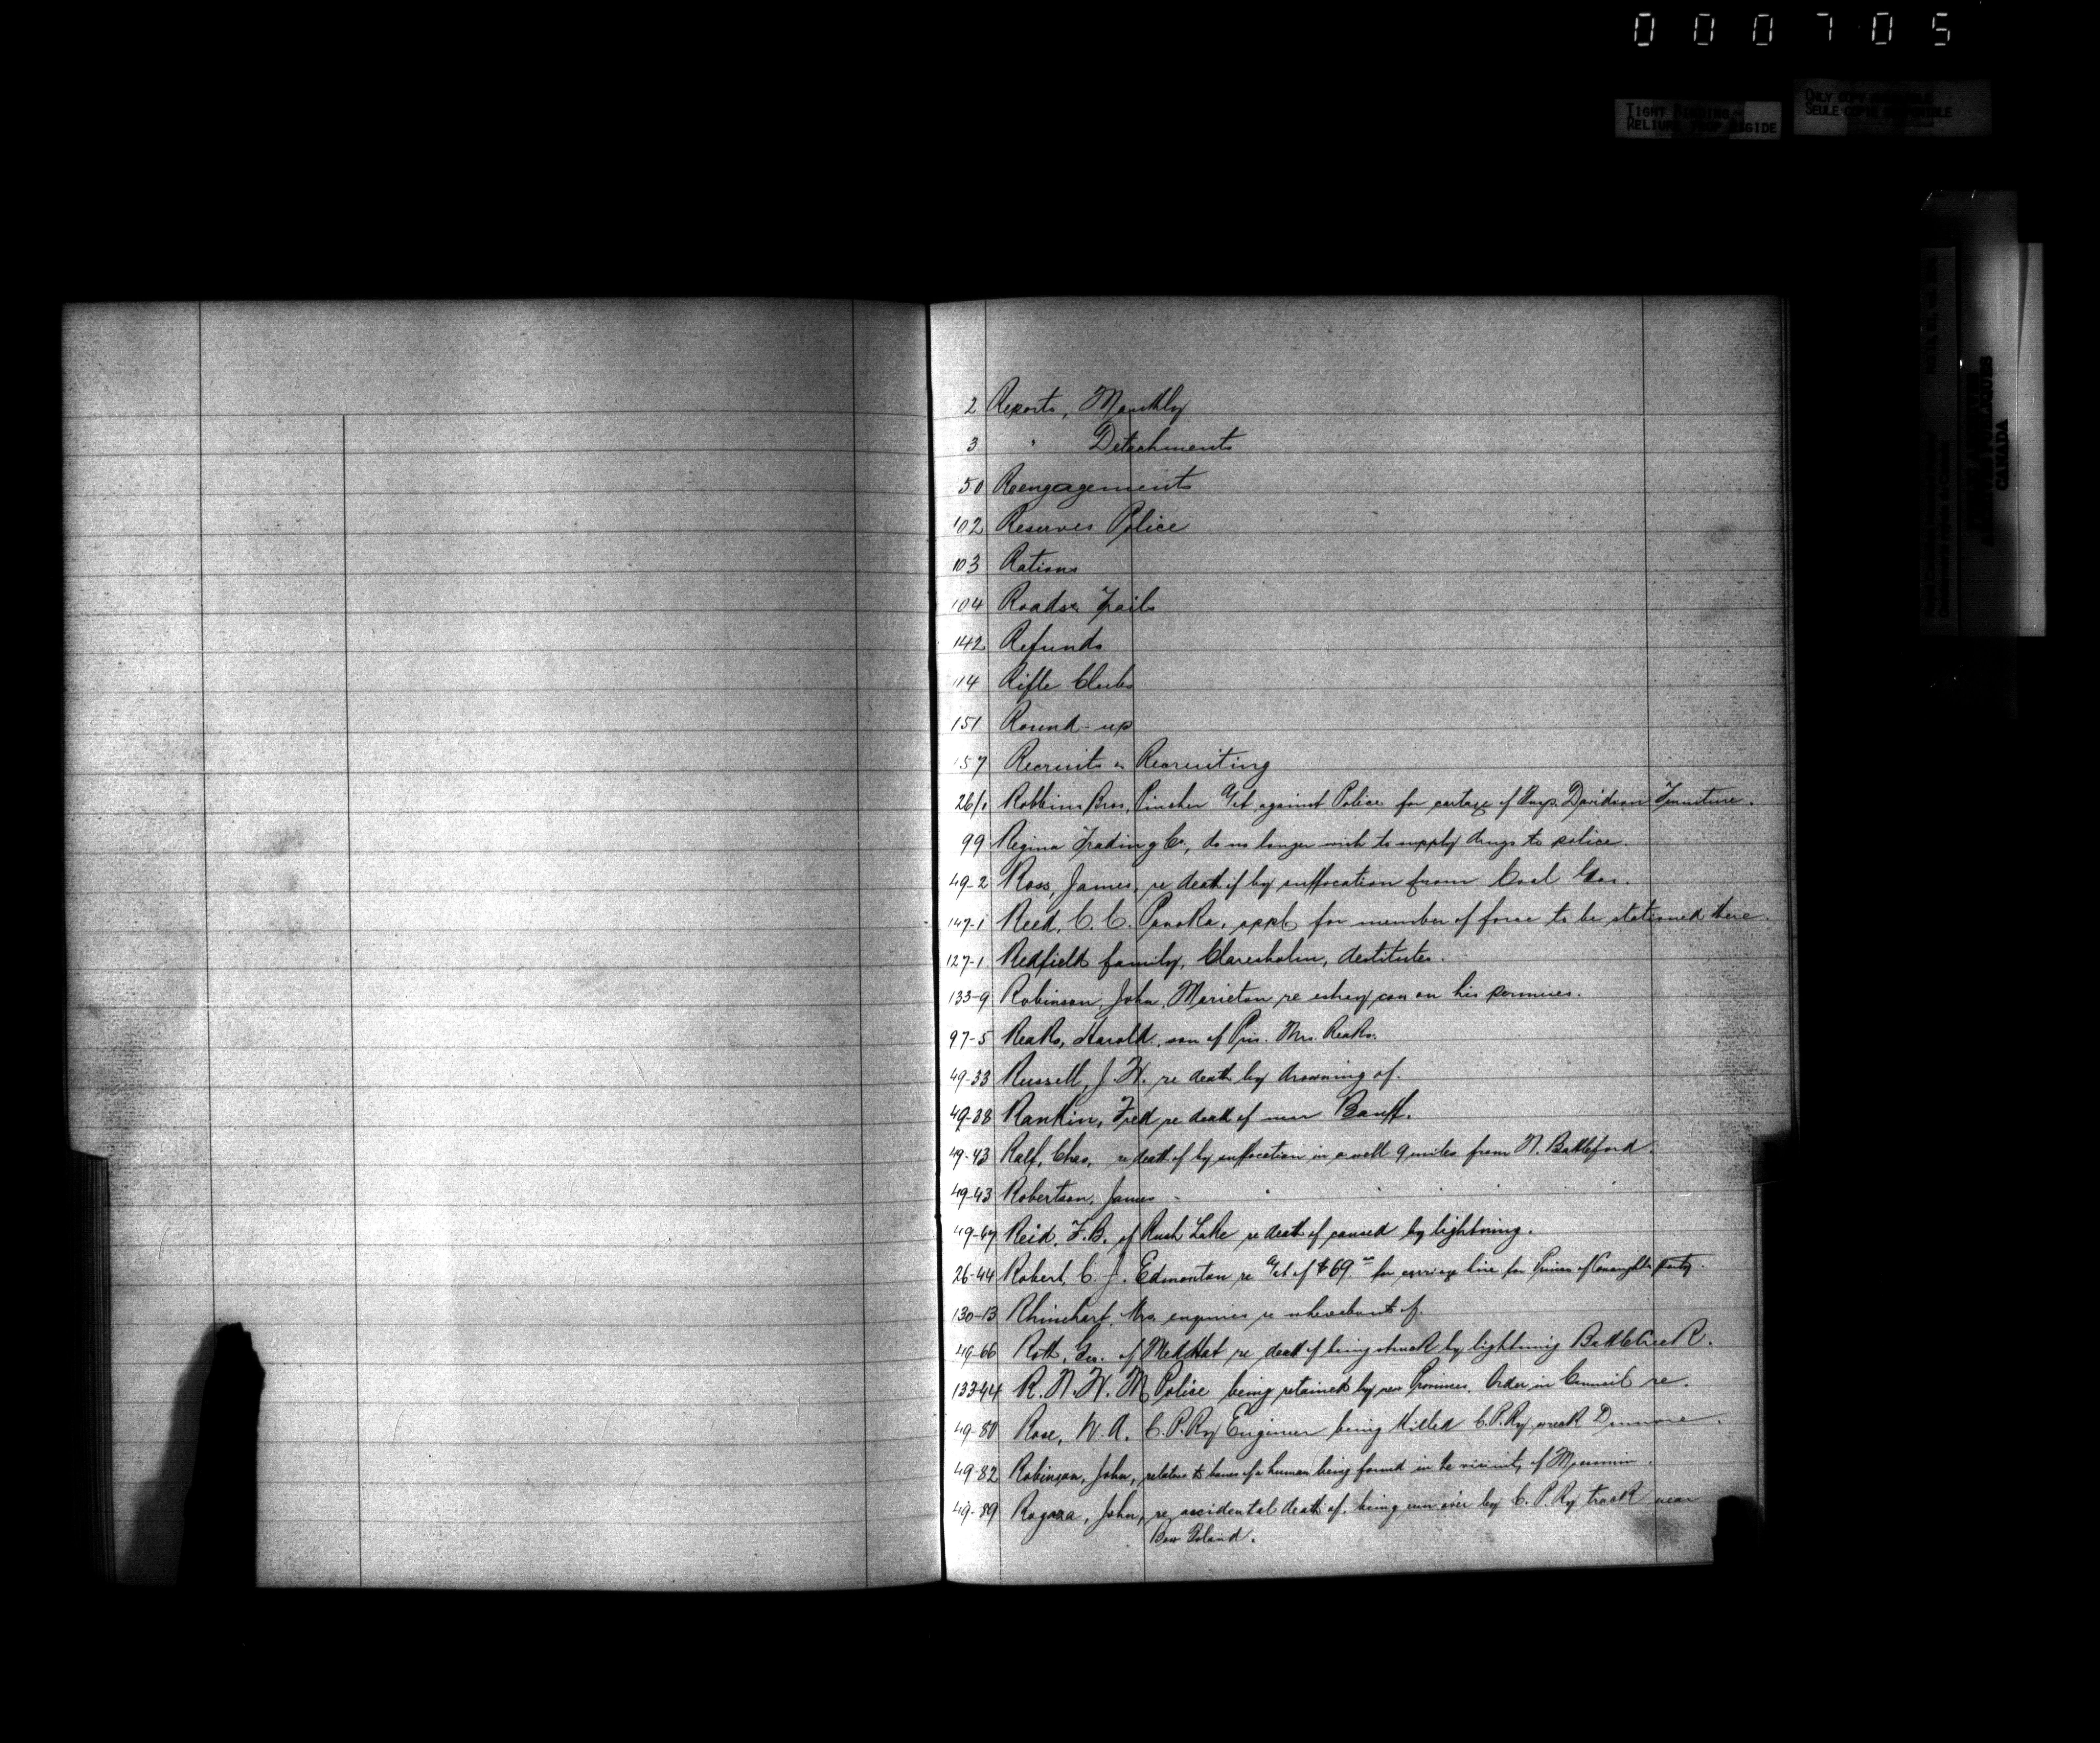 000705
TIGHT BINDING
RELIURE TROP RIGIDE
ONLY COPY AVAILABLE
SEULE COPIE DISPONIBLE
CANADA
2 Reports, Monthly
3 " Detachments
50 Reengagements
102 Reserves Police
103 Rations
104 Roads & Trails
142 Refunds
114 Rifle Clubs
151 Round-up
157 Recruits & Recruiting
26/1 Robbins Bros, Pincher a/ct against Police for cartage of Insp. Davidson Furniture.
99 Regina Trading Co., do no longer wish to supply drugs to police.
49-2 Ross, James, re death of by suffocation from Coal Gas.
147-1 Reed, C. C. Ponoka, appl for member of force to be stationed there.
127-1 Redfield family, Claresholm, destitutes.
133-9 Robinson, John, re on his
97-5 Reaks, Harold, son of Pris. Mrs. Reaks.
49-33 Russell, J. W. re death by drowning of.
49-38 Rankin, Fred re death of near Banff.
49-43 Ralf, Chas, re death of by suffocation in a well 9 miles from N. Battleford.
49-43 Robertson, James " " " "
49-67 Reid, F.B. of Rush Lake re death of caused by lightning.
26-44 Robert, C. J. Edmonton re a/ct of $69.00 for carriage hire for Prince of Connaughts party.
130-13 Rhinehart, Mrs. enquiries re whereabouts of.
49-66 Roth, Geo. of Med Hat re death of being struck by lightning Battle Creek.
133-44 R. N. W. M Police being retained by new Provinces. Order in Council re.
49-80 Rose, W. A. C. P. Ry Engineer being killed C. P. Ry wreck Dunmore.
49-82 Robinson, John, relative to bones of a human being found in the vicinity of Moosomin.
49-89 Rogoza, John, re accidental death of, being run over by C. P. Ry track near
Bow Island.